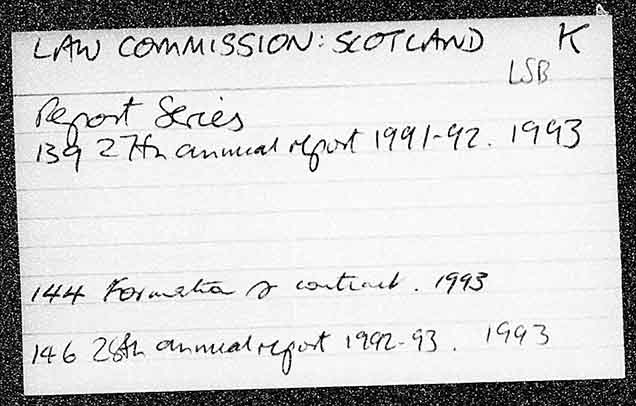 LAW COMMISSION: SCOTLAND K
LSB
Report Series
139 27th annual report 1991-92. 1993
144 Formation of contract. 1993
146 28th annual report 1992-93. 1993